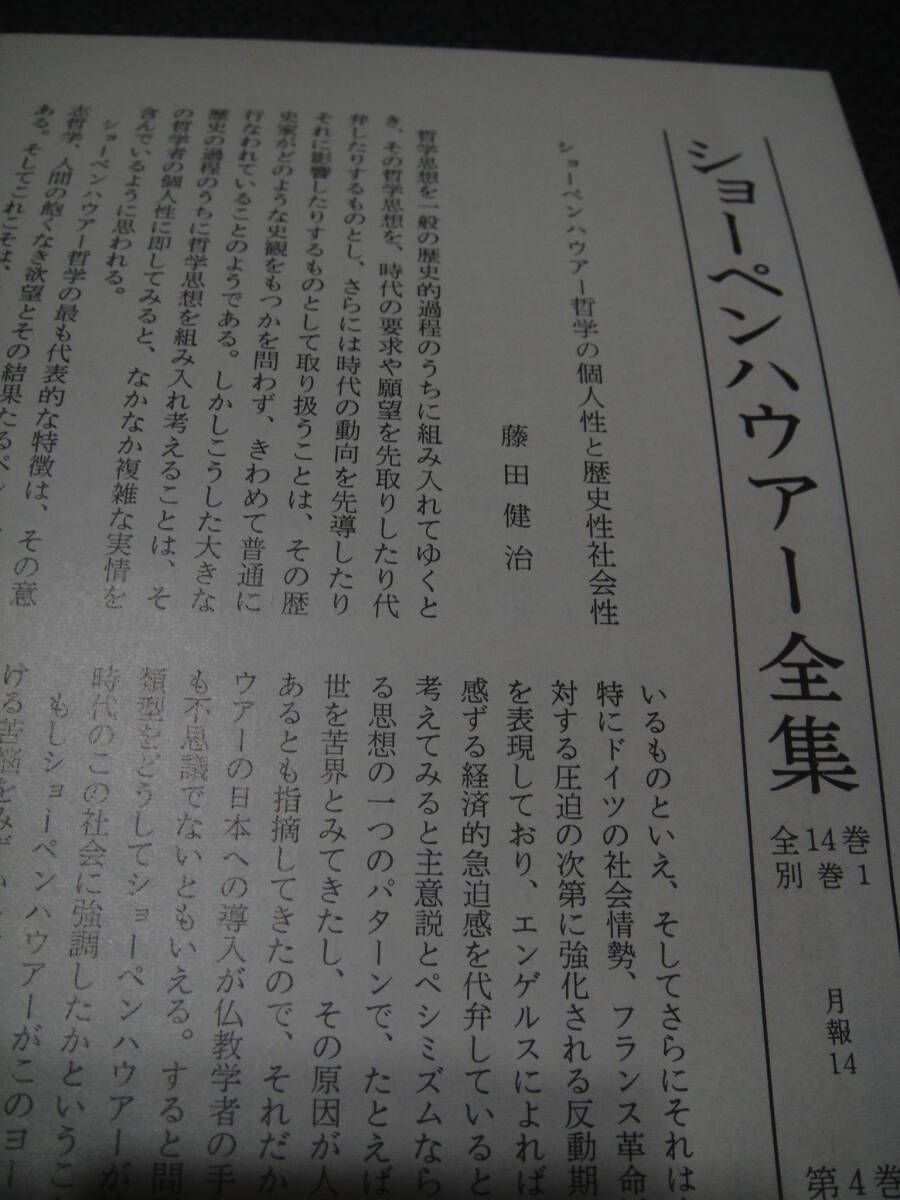 ショーペンハウアー全集
全14巻
別巻1
月報14
第4巻
ショーペンハウアー哲学の個人性と歴史性社会性
藤田健治
哲学思想を一般の歴史的過程のうちに組み入れてゆくと
き、その哲学思想を、時代の要求や願望を先取りしたり代
弁したりするものとし、さらには時代の動向を先導したり
それに影響したりするものとして取り扱うことは、その歴
史家がどのような史観をもつかを問わず、きわめて普通に
行なわれていることのようである。しかしこうした大きな
歴史の過程のうちに哲学思想を組み入れ考えることは、そ
の哲学者の個人性に即してみると、なかなか複雑な実情を
含んでいるように思われる。
ショーペンハウアー哲学の最も代表的な特徴は、その意
志哲学、人間の飽くなき欲望とその結果たるペシ
ある。そしてこれこそは、
いるものといえ、そしてさらにそれは
特にドイツの社会情勢、フランス革命
対する圧迫の次第に強化される反動期
を表現しており、エンゲルスによれば
感ずる経済的急迫感を代弁していると
考えてみると主意説とペシミズムなら
る思想の一つのパターンで、たとえば
世を苦界とみてきたし、その原因が人
あるとも指摘してきたので、それだか
ウアーの日本への導入が仏教学者の手
も不思議でないともいえる。すると問
類型をどうしてショーペンハウアーが
時代のこの社会に強調したかというこ
もしショーペンハウアーがこのヨー
ける苦悩をみず